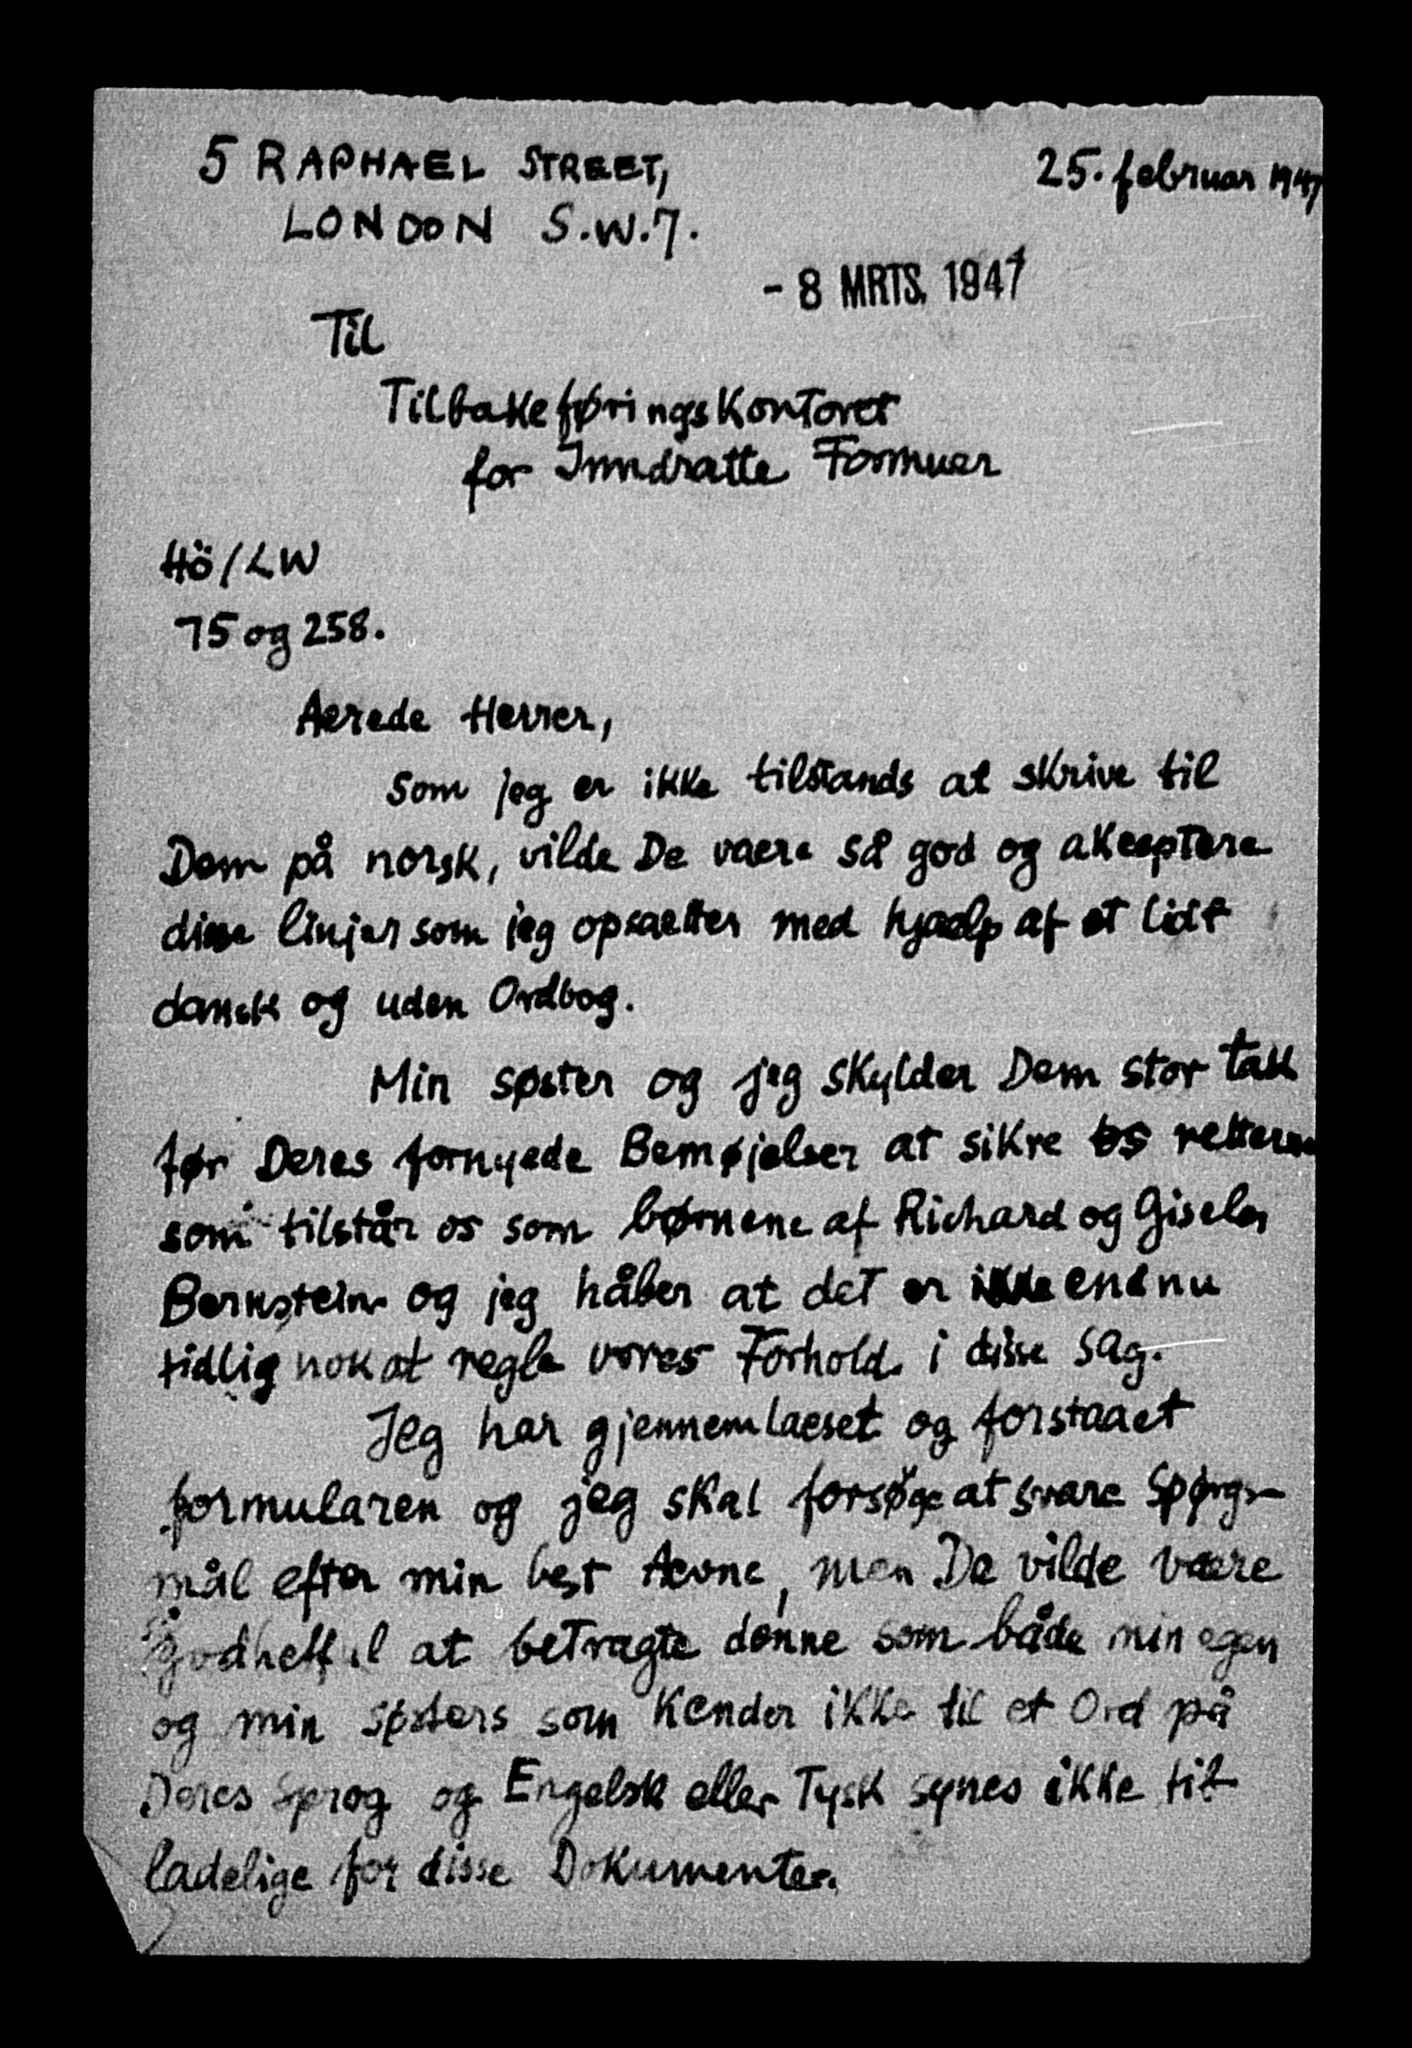 5 RAPHAEL STREET,
25. februar 1947
LONDON S.W.7.
- 8 MRTS. 1947
Til
Tilbakeføringskontoret
for Inndratte Formuer
Hö/LW
75 og 258.
Aerede Herrer,
som jeg er ikke tilstands at skrive til
Dem på norsk, vilde De vaere så god og akceptere
disse linjer som jeg opsaetter med hjaelp af et lidt
dansk og uden Ordbog.
Min søster og jeg skylder Dem stor takk
før Deres fornyede Bemøjelser at sikre os retterne
som tilstår os som børnene af Richard og Gisela
Bernstein og jeg håber at det er ikke endnu
tidlig nok at regle vores Forhold i disse sag.
Jeg har gjennemlaeset og forstaaet
formularen og jeg skal forsøge at svare Spørgs-
mål efter min best Aevne, men De vilde vaere
så godheful at betragte denne som både min egen
og min søsters som kender ikke til et Ord på
Deres Sprog og Engelsk eller Tysk synes ikke til-
ladelige for disse Dokumenter.